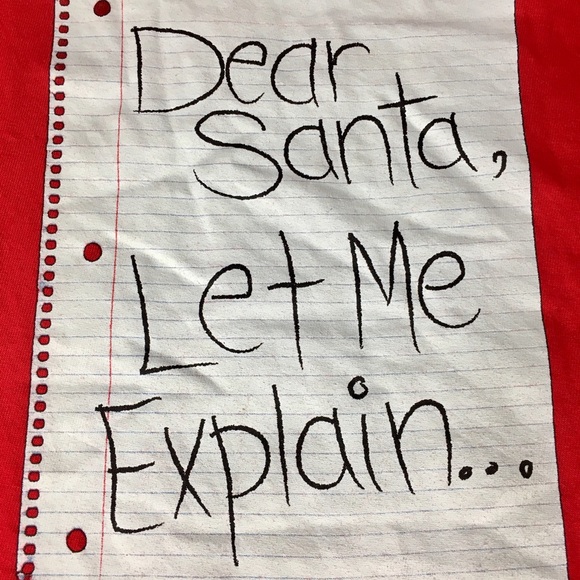 Dear
Santa,
Let Me
Explain...